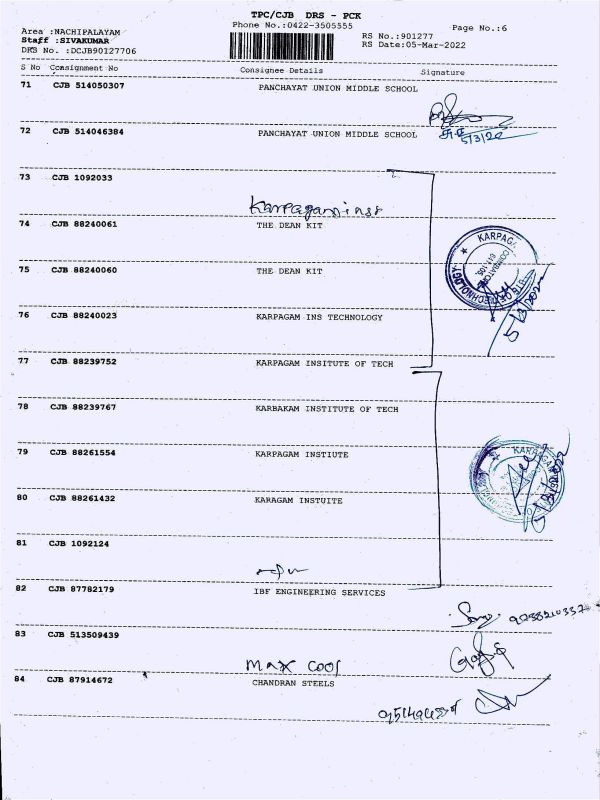 TPC/CJB DRS - PCK
Area :NACHIPALAYAM Phone No.:0422-3505555 Page No.:6
Staff :SIVAKUMAR RS No.:901277
DRS No. :DCJB90127706 RS Date:05-Mar-2022
S No Consignment No Consignee Details Signature
71 CJB 514050307 PANCHAYAT UNION MIDDLE SCHOOL
72 CJB 514046384 PANCHAYAT UNION MIDDLE SCHOOL
5/3/22
73 CJB 1092033
Karpagam inss
74 CJB 88240061 THE DEAN KIT
KARPAGA
COIMBATORE
641 105
TECHNOLOGY
75 CJB 88240060 THE DEAN KIT
5/3/2022
76 CJB 88240023 KARPAGAM INS TECHNOLOGY
77 CJB 88239752 KARPAGAM INSITUTE OF TECH
78 CJB 88239767 KARBAKAM INSTITUTE OF TECH
79 CJB 88261554 KARPAGAM INSTIUTE
KARPAGAM
80 CJB 88261432 KARAGAM INSTUITE
81 CJB 1092124
82 CJB 87782179 IBF ENGINEERING SERVICES
83 CJB 513509439
Max cool
84 CJB 87914672 CHANDRAN STEELS